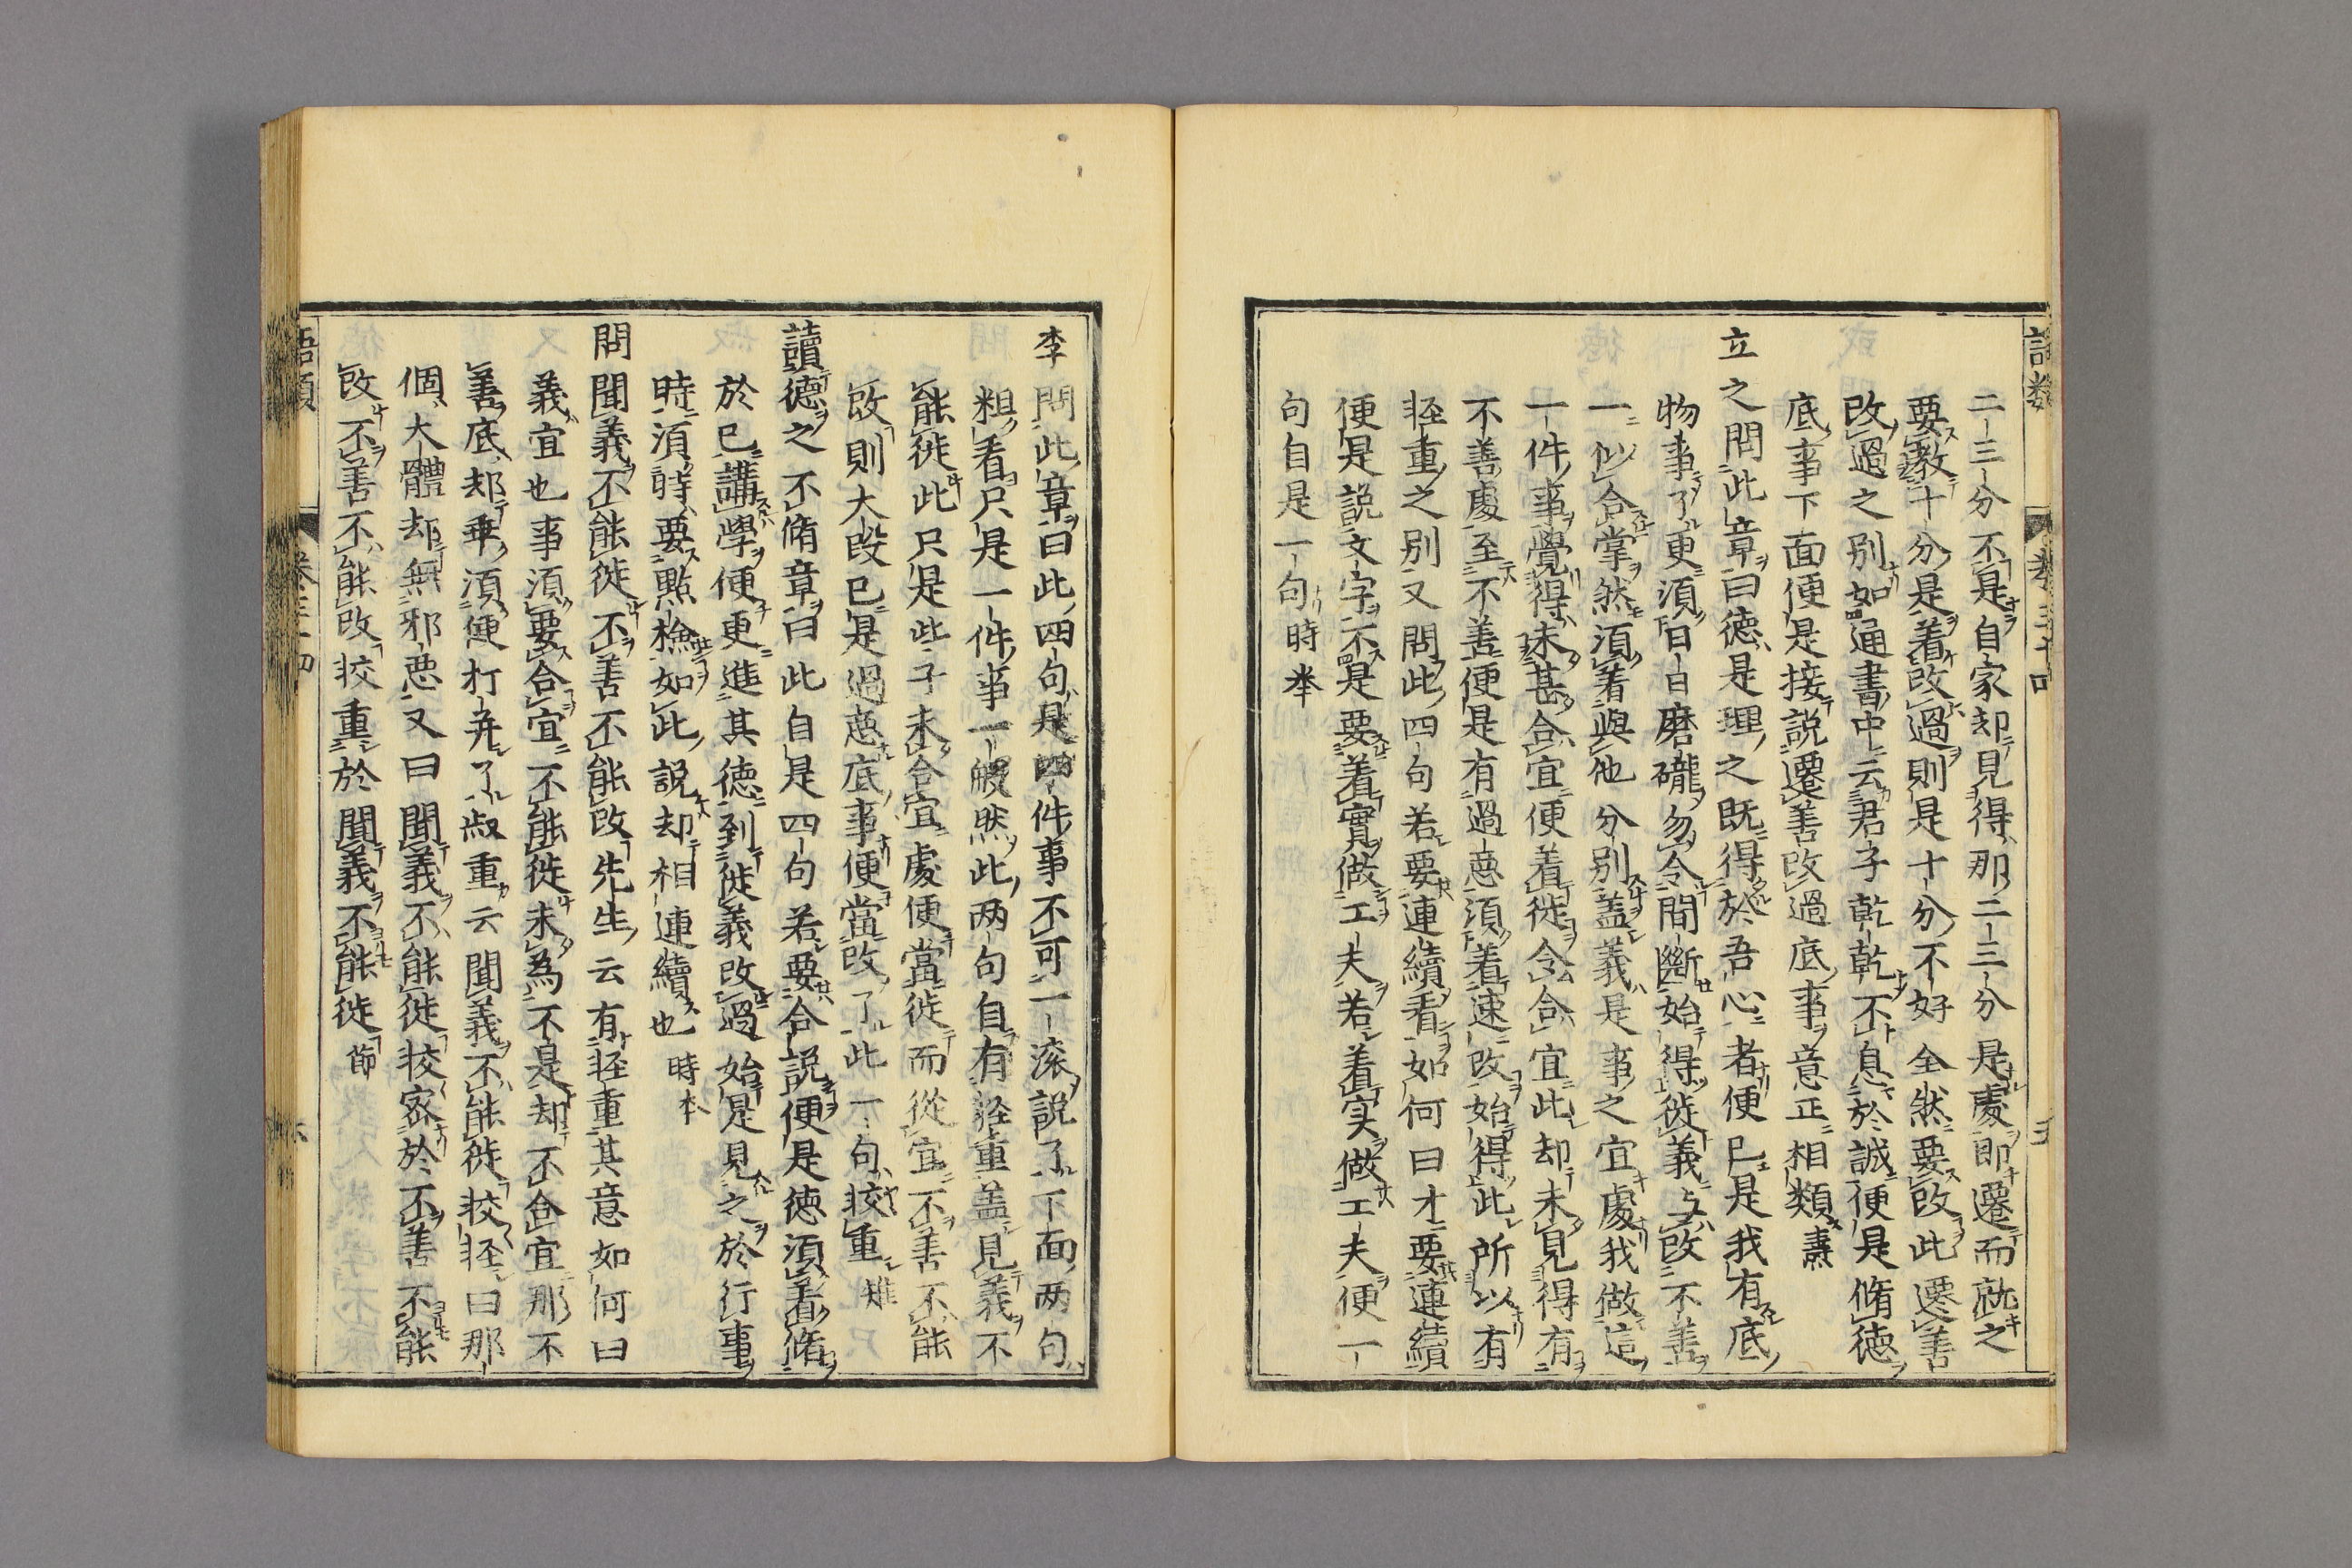 二三分不是自家却見得那二三分是處即遷而就之
要教十分是着改過則是十分不好全然要改此遷善
改過之別如通書中云君子乾乾不息於誠便是脩徳
底事下面便是接説遷善改過底事意正相類燾
立之問此章曰徳是理之既得於吾心者便已是我有底
物事了更須日日磨礲勿令間断始得徙義与改不善
一似合掌然須着與他分別蓋義是事之宜處我做這
一件事覺得未甚合宜便着徙令合宜此却未見得有
不善處至不善便是有過悪須着速改始得此所以有
軽重之別又問此四句若要連續看如何曰才要連續
便是説文字不是要着實做工夫若着実做工夫便一
句自是一句時挙
李問此章曰此四句是四件事不可一滚説了下面两句
粗看只是一件事一般然此两句自有軽重蓋見義不
能徙此只是些子未合宜處便當徙而從宜不善不能
改則大段已是過悪底事便當改了此一句挍重雉
讀徳之不脩章曰此自是四句若要合説便是徳須着脩
於已講學便更進其徳到徙義改過始是見之於行事
時須時要點檢如此説却相連續也時本
問聞義不能徙不善不能改先生云有軽重其意如何曰
義宜也事須要合宜不能徙未為不是却不合宜那不
善底却乖須便打并了叔重云聞義不能徙挍軽曰那
個大體却無邪悪又曰聞義不能徙挍宻於不善不能
改不善不能改挍重於聞義不能徙節